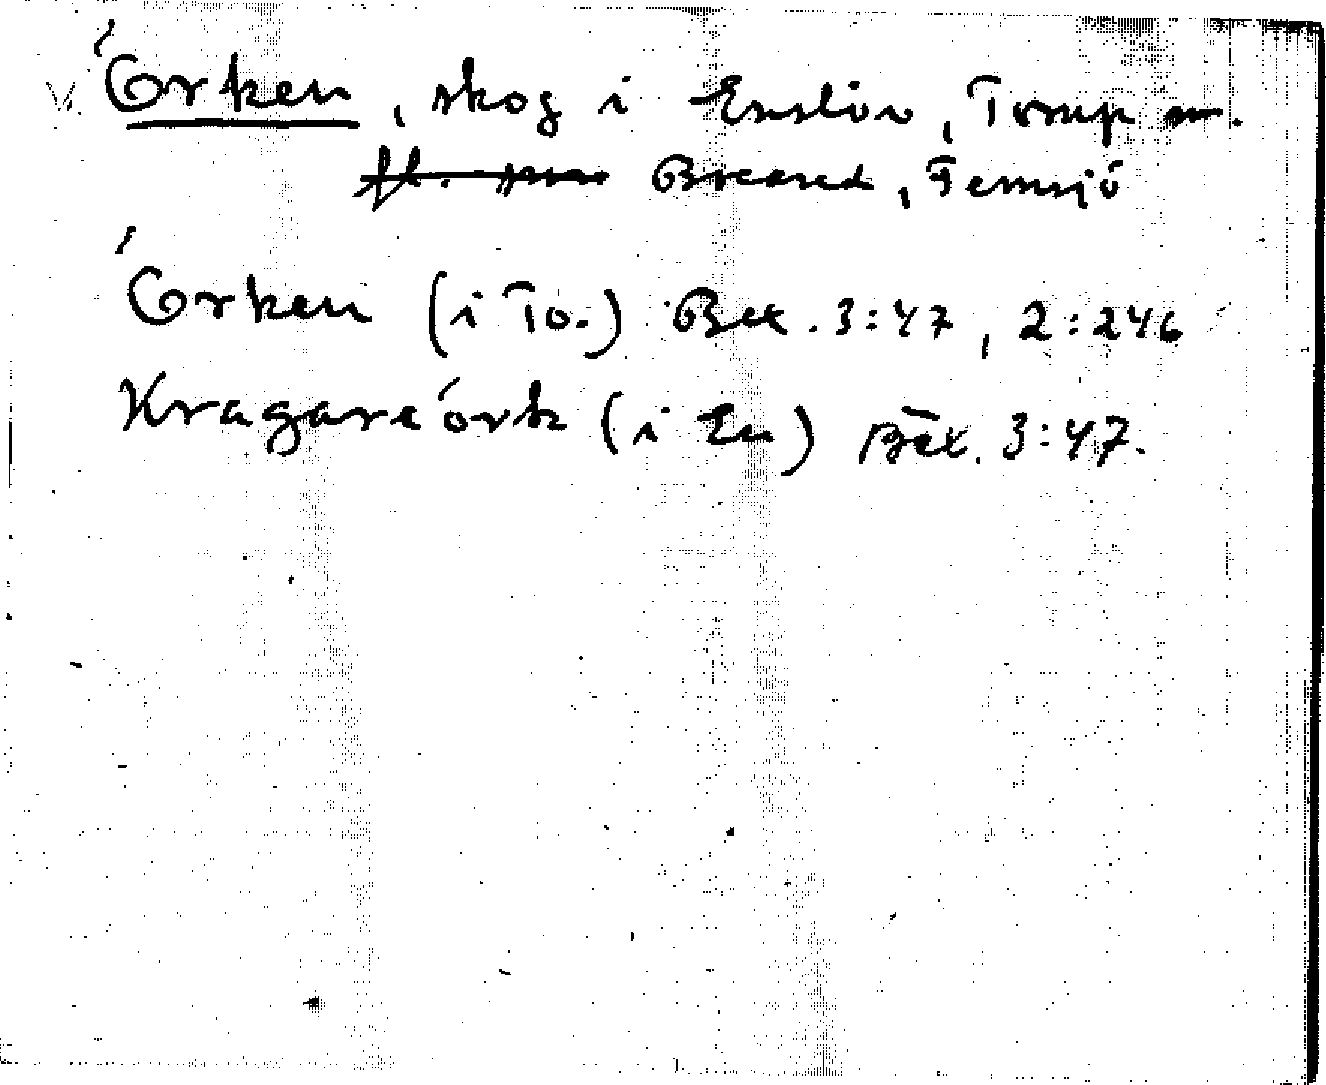 V. Örken, skog i Enslöv, Torup m.
fl. snr Breared, Femsjö
Örken (i To.) Bex. 3:47, 2:246
Kragareörk (i En) Bex. 3:47.